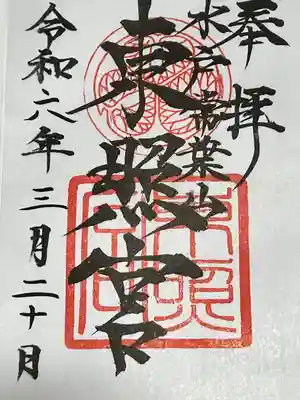 奉拝
水戸常葉山
東照宮
令和六年三月二十日